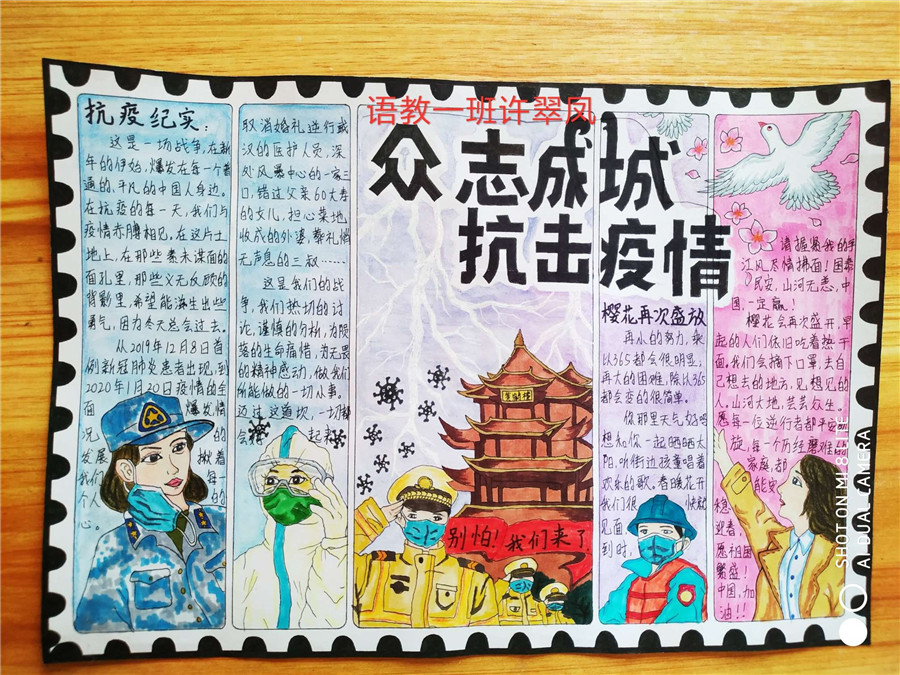 语教一班许翠凤
众志成城
抗击疫情
抗疫纪实：
这是一场战争，在新
年的伊始，爆发在每一个普
通的、平凡的中国人身边。
在抗疫的每一天，我们与
疫情赤膊相见，在这片土
地上，在那些素未谋面的
面孔里，那些义无反顾的
背影里，希望能滋生出些
勇气，因为冬天总会过去。
从2019年12月8日首
例新冠肺炎患者出现，到
2020年1月20日疫情的全
面爆发情
况，的
发展揪着
我们每一
个人的
心。
取消婚礼逆行武
汉的医护人员，深
处风暴中心的一家三
口，错过父亲60大寿
的女儿，担心菜地
收成的外婆，葬礼悄
无声息的三叔……
这是我们的战
争，我们热切的讨
论，谨慎的分析，为陨
落的生命痛惜，为无畏
的精神感动，做我们
所能做的一切小事。
迈过这道坎，一切都
会好起来
黄鹤楼
别怕！我们来了
樱花再次盛放
再小的努力，乘
以365都会很明显，
再大的困难，除以365
都会变的很简单。
你那里天气好吧
想和你一起晒晒太
阳，听街边孩童唱着
欢乐的歌。春暖花开
我们很快就
见面，
到时，
请握紧我的手
江风尽情拂面！国泰
民安，山河无恙，中
国，一定赢！
樱花会再次盛开，早
起的人们依旧吃着热干
面。我们会摘下口罩，去自
己想去的地方，见想见的
人。山河大地，芸芸众生。
愿每一位逆行者都平安
旋，每一个历经磨难的
家庭，都
能安
稳
迎春，
愿祖国
繁盛！
中国，加
油！！
SHOT ON MI 8 SE
AI DUAL CAMERA